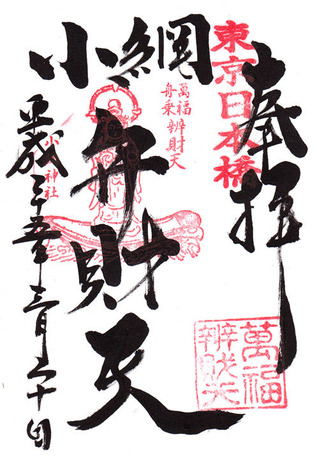 奉拝
東京日本橋
小網
弁財天
萬福
舟乗辨財天
小網神社
平成二五年三月二十日
萬福
辨財天